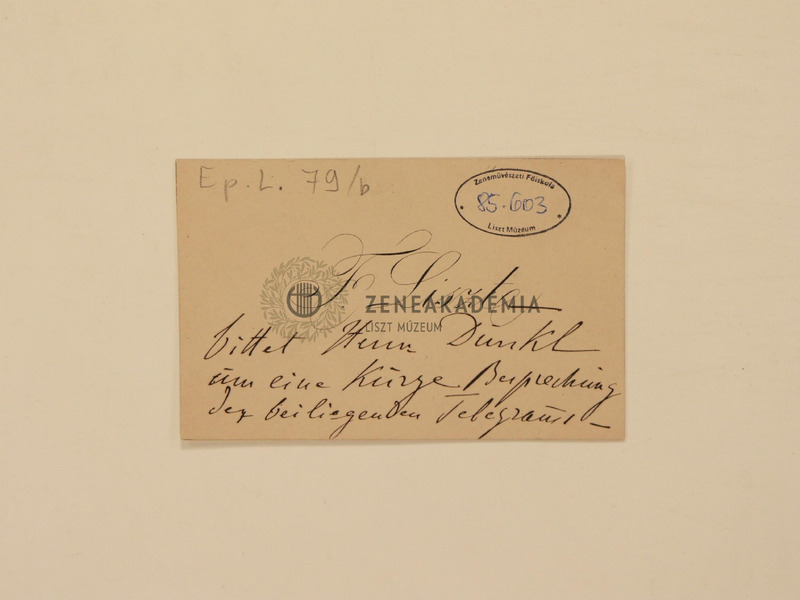 Ep. L. 79/b
Zeneművészeti Főiskola
85.603
Liszt Múzeum
F. Liszt
ZENEAKADÉMIA
LISZT MÚZEUM
bittet Herrn Dunkl
um eine Kurze Besprechung
des beiliegenden Telegrams –